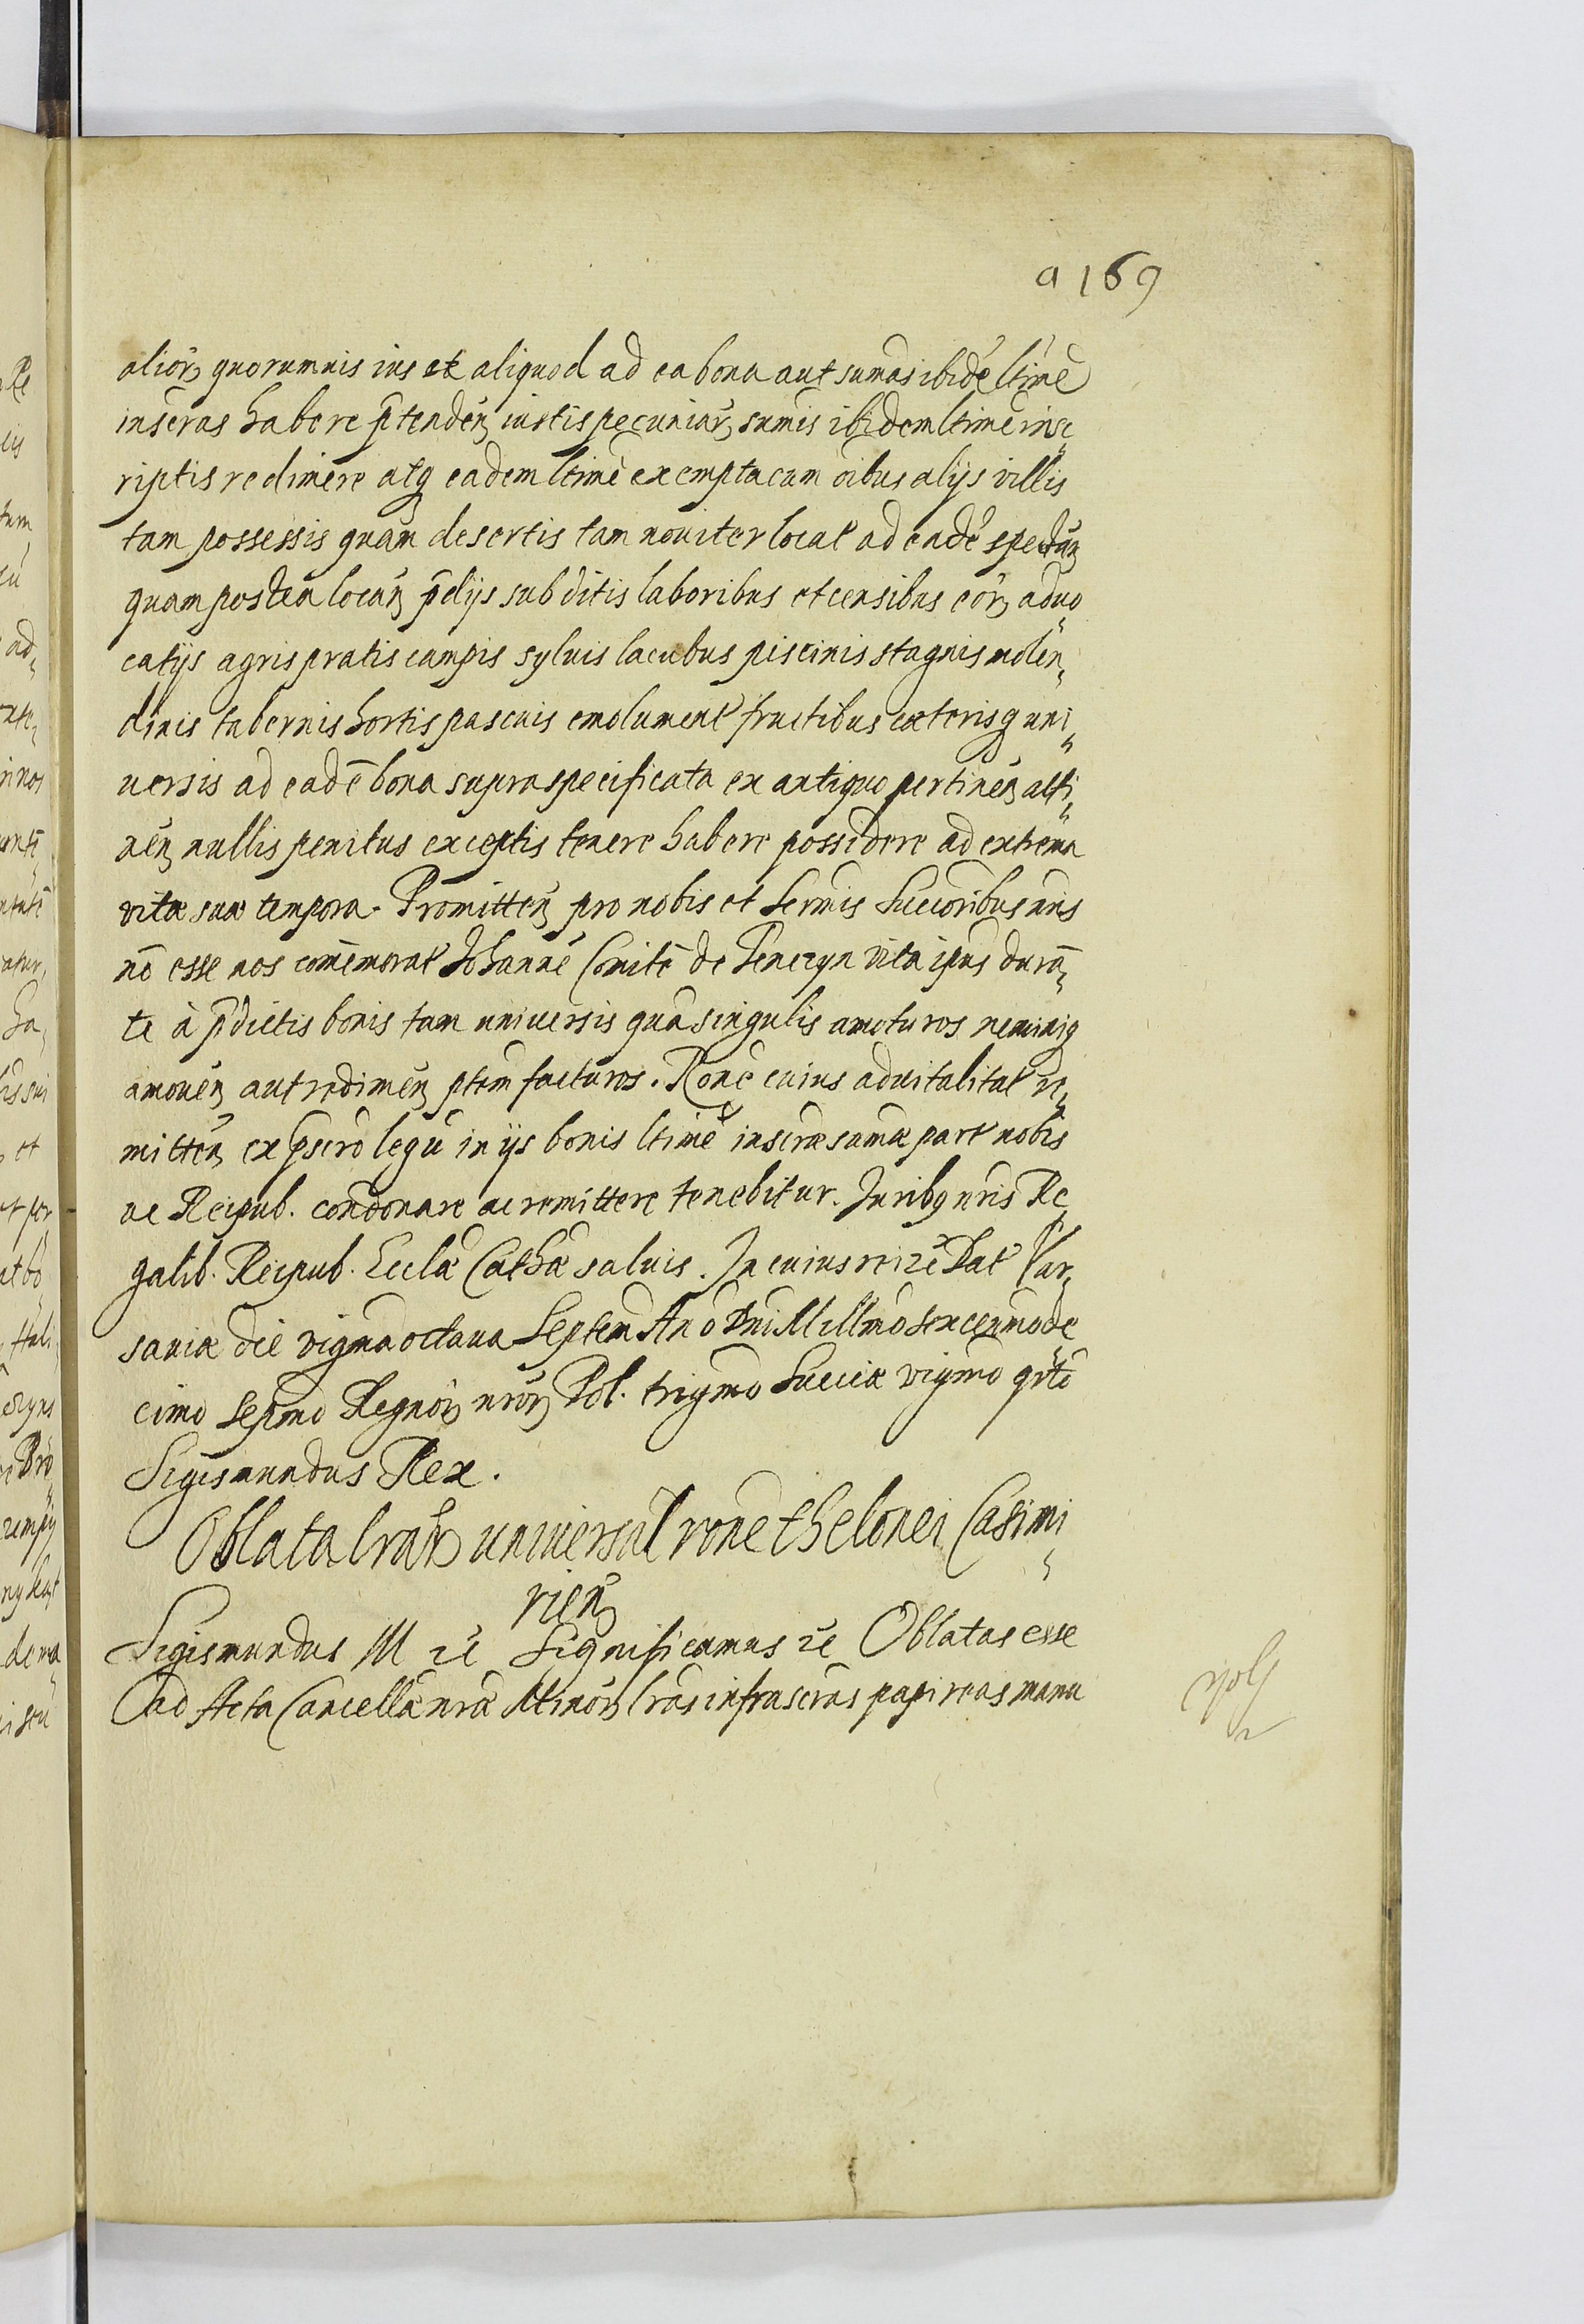 a 169
alior quorumuis ius et aliquod ad ea bona aut sumas ibidē ltimē
inscras habere p̄tendeñ iustis pecuniar sumis ibidem ltime insc
riptis redimere atq eadem ltimè exempta cum oibus alijs villis
tam possessis quam desertis tam nouiter locat ad eadē spectañ
quam postea locañ p̄dijs subditis laboribus et censibus eor aduo
catijs agris pratis campis syluis lacubus piscinis stagnis molen
dinis tabernis hortis pascuis emolument fructibus cæterisq uni
uersis ad eadē bona supraspecificata ex antiquo pertineñ atti
neñ nullis penitus exceptis tenere habere possidere ad extrema
vitæ suæ tempora. Promitteñ pro nobis et Sermis Succoribus nris
nō esse nos comēmorat Johannē Comitē de Tenczyn vita ipius durā
te à p̄dictis bonis tam uniuersis quā singulis amoturos neminiq
amoueñ aut redimeñ ptem facturos. Rone cuius aduitalitat re
mitteñ ex p̄scro legū in ijs bonis ltimē inscræ sumæ part nobis
ac Reipub. condonare ac remittere tenebitur. Juribq nris Re
galib. Reipub. Ecclæ Cathæ saluis. In cuius rei zē Dat Var
sauiæ die vigma octaua Septem Ano Dni Millmo sexcenmo de
cimo septmo Regnor nror Pol. trigmo Sueciæ vigmo qrto
Sigismundus Rex.
Oblata lrar uniuersal rone thelonei Casimi
rieñ
Sigismundus III zē Significamus zē Oblatas esse
ad Acta Cancellæ nræ Minor lras infrascras papireas manu